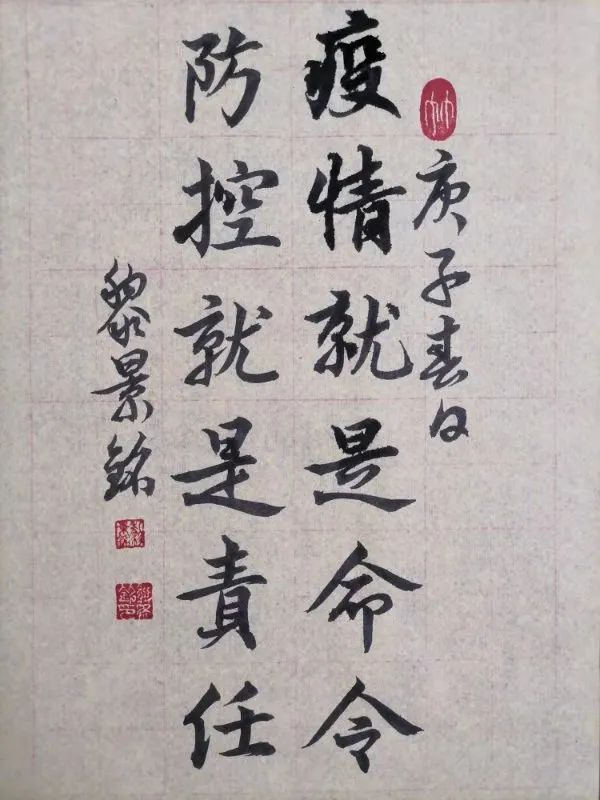 庚子春日
疫情就是命令
防控就是責任
黎景銘